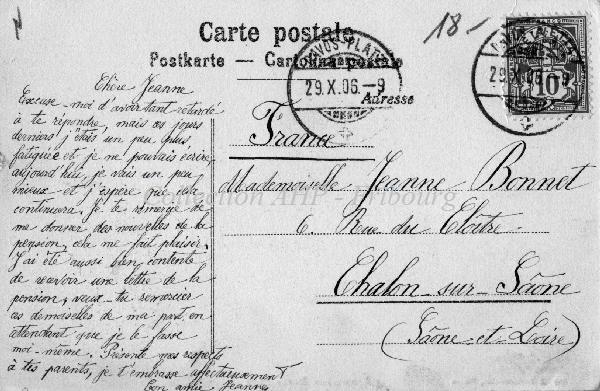 18-
Carte postale
Postkarte — Cartolina postale
DAVOS-PLATZ
29.X.06.-9
DAVOS-PLATZ
29.X.06.-9
FRANCO
10
Adresse
France
Mademoiselle Jeanne Bonnet
6. Rue du Cloître
Chalon-sur-Saône
(Saône-et-Loire)
Collection AHF - Fribourg
Chère Jeanne
Excuse-moi d'avoir tant retardé
à te répondre, mais ces jours
derniers j'étais un peu plus
fatiguée et je ne pouvais écrire,
aujourd'hui, je vais un peu
mieux et j'espère que cela
continuera. Je te remercie de
me donner des nouvelles de la
pension, cela me fait plaisir.
J'ai été aussi bien contente
de recevoir une lettre de la
pension, veux-tu remercier
ces demoiselles de ma part en
attendant que je le fasse
moi-même. Présente mes respects
à tes parents, je t'embrasse affectueusement
Ton amie Jeanne